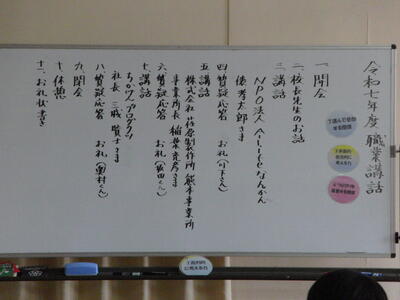 令和七年度 職業講話
一、開会
二、校長先生のお話
三、講話
NPO法人
優孝太郎さま
四、質疑応答 お礼(下さん)
五、講話
株式会社 荏原製作所 熊本事業所
事業所長 稲葉克彦さま
六、質疑応答 お礼(飯田くん)
七、講話
ちかけんプロダクツ
社長 三城賢士さま
八、質疑応答 お礼(奥村くん)
九、閉会
十、休憩
十一、お礼状書き